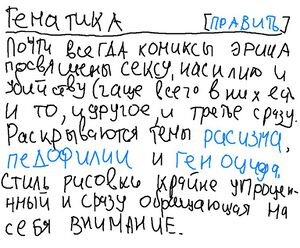 Тематика [ПРАВИТЬ]
Почти всегда комиксы Эрика
посвящены сексу, насилию и
убийству (чаще всего в них есть
и то, и другое и третье сразу.
Раскрываются темы расизма,
педофилии и геноцида.
Стиль рисовки крайне упрощен-
нный и сразу обращающая на
себя внимание.